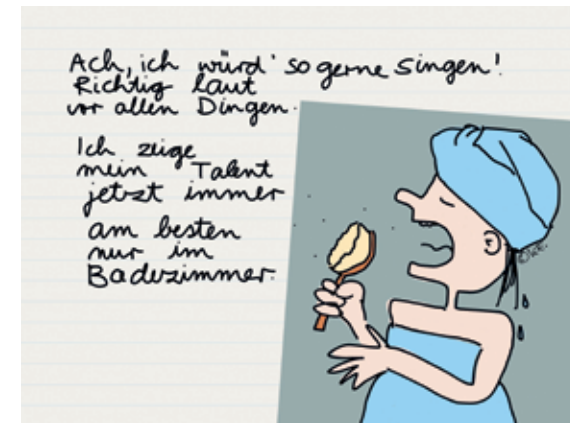 Ach, ich würd' so gerne singen!
Richtig laut
vor allen Dingen.
Ich zeige
mein Talent
jetzt immer
am besten
nur im
Badezimmer.